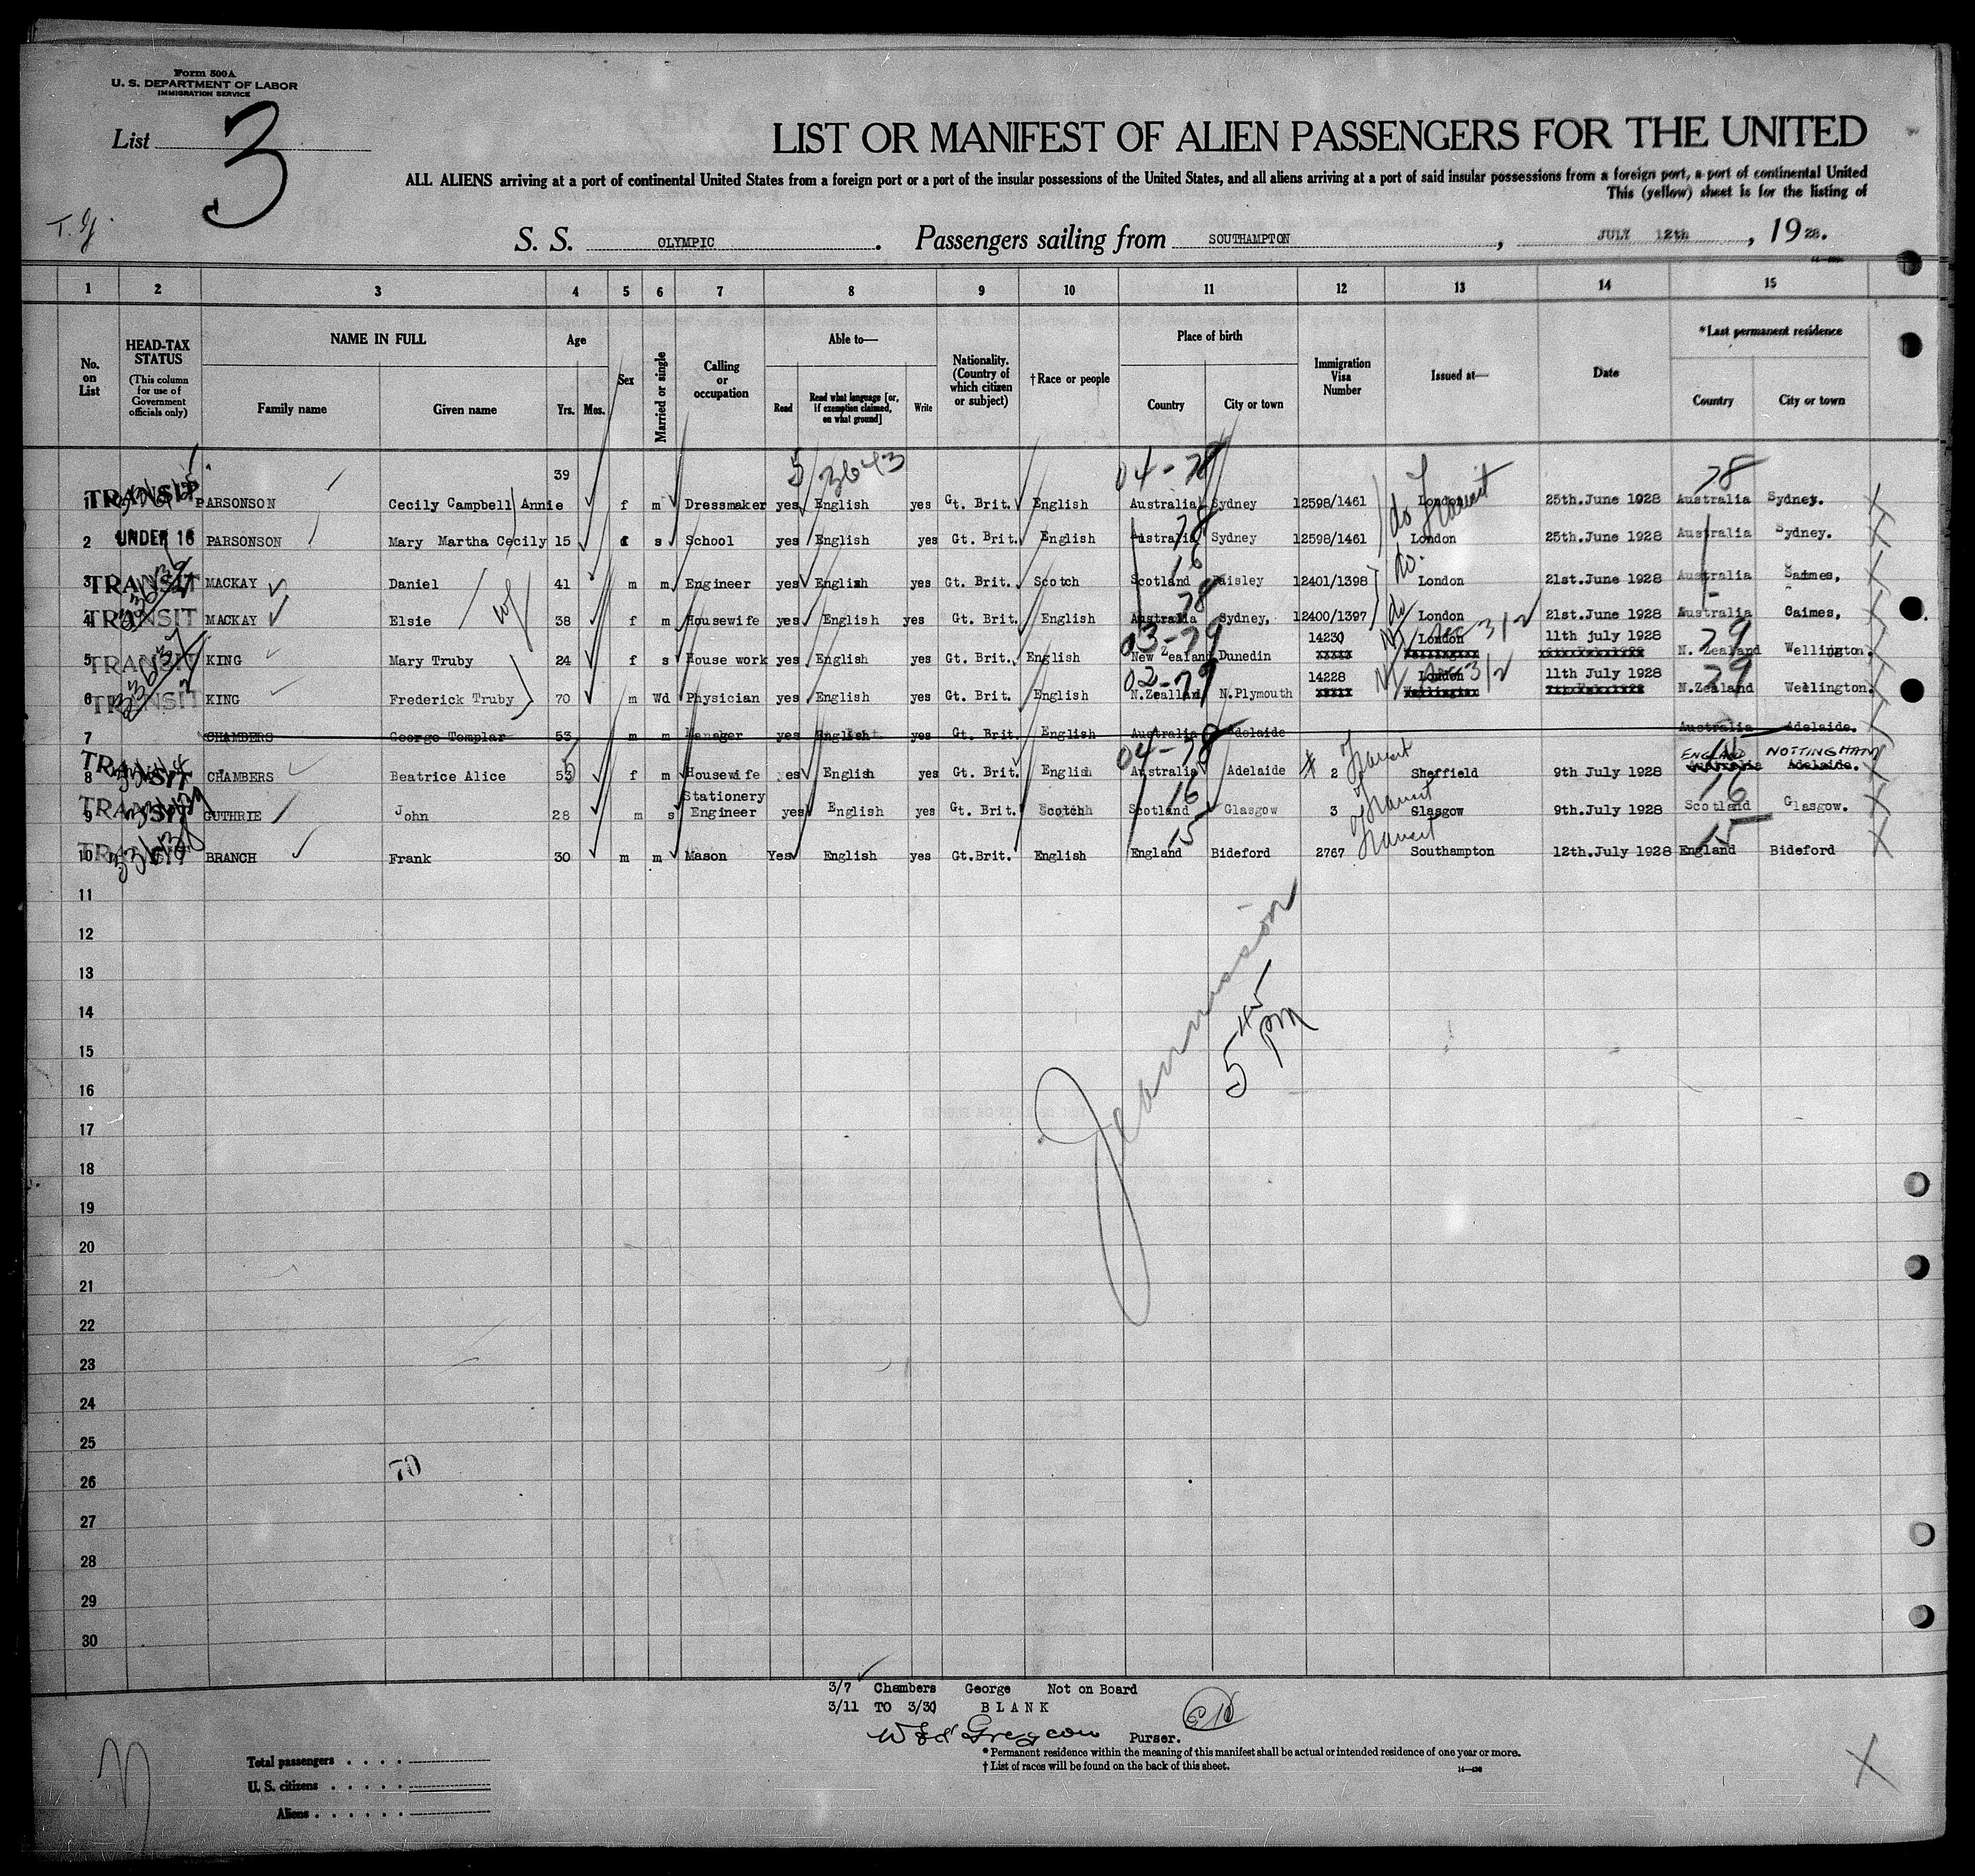 Form 500A
U. S. DEPARTMENT OF LABOR
IMMIGRATION SERVICE
List 3
LIST OR MANIFEST OF ALIEN PASSENGERS FOR THE UNITED
ALL ALIENS arriving at a port of continental United States from a foreign port or a port of the insular possessions of the United States, and all aliens arriving at a port of said insular possessions from a foreign port, a port of continental United
This (yellow) sheet is for the listing of
S. S. OLYMPIC. Passengers sailing from SOUTHAMPTON, JULY 12th, 1928.
1 2 3 4 5 6 7 8 9 10 11 12 13 14 15
No. on List
HEAD-TAX STATUS (This column for use of Government officials only)
NAME IN FULL
Family name Given name
Age
Yrs. Mos.
Sex
Married or single
Calling or occupation
Able to—
Read Read what language [or, if exemption claimed, on what ground] Write
Nationality. (Country of which citizen or subject)
†Race or people
Place of birth
Country City or town
Immigration Visa Number
Issued at—
Date
*Last permanent residence
Country City or town
04-78 78
1 TRANSIT PARSONSON Cecily Campbell Annie 39 f m Dressmaker yes English yes Gt. Brit. English Australia Sydney 12598/1461 London Transit 25th.June 1928 Australia Sydney.
2 UNDER 16 PARSONSON Mary Martha Cecily 15 f s School yes English yes Gt. Brit. English Australia Sydney 12598/1461 do London 25th.June 1928 Australia Sydney.
3 TRANSIT MACKAY Daniel 41 m m Engineer yes English yes Gt. Brit. Scotch Scotland Paisley 12401/1398 do. London 21st.June 1928 Australia
4 TRANSIT MACKAY Elsie 38 f m Housewife yes English yes Gt. Brit. English Australia Sydney, 12400/1397 do London 21st.June 1928 Australia Caimes,
5 TRANSIT KING Mary Truby 24 f s House work yes English yes Gt. Brit. English New Zealand Dunedin 14230 London 11th july 1928 N. Zealand Wellington.
6 TRANSIT KING Frederick Truby 70 m Wd Physician yes English yes Gt. Brit. English N.Zealland N.Plymouth 14228 London 11th July 1928 N.Zealand Wellington.
7 CHAMBERS George Templar 53 m m Manager yes English yes Gt. Brit. English Australia Adelaide Australia Adelaide.
8 TRANSIT CHAMBERS Beatrice Alice 53 f m Housewife yes English yes Gt. Brit. English Australia Adelaide 2 Transit Sheffield 9th July 1928 ENGLAND NOTTINGHAM Australia Adelaide.
9 TRANSIT GUTHRIE John 28 m s Stationery Engineer yes English yes Gt. Brit. Scotch Scotland Glasgow 3 Transit Glasgow 9th.July 1928 Scotland Glasgow.
10 TRANSIT BRANCH Frank 30 m m Mason Yes English yes Gt.Brit. English England Bideford 2767 Transit Southampton 12th.July 1928 England Bideford
11
12
13
14
15
16
17
18
19
20
21
22
23
24
25
26
27
28
29
30
5 45 pm
70
3/7 Chambers George Not on Board
3/11 TO 3/30 BLANK
Purser.
* Permanent residence within the meaning of this manifest shall be actual or intended residence of one year or more.
† List of races will be found on the back of this sheet.
Total passengers
U. S. citizens
Aliens